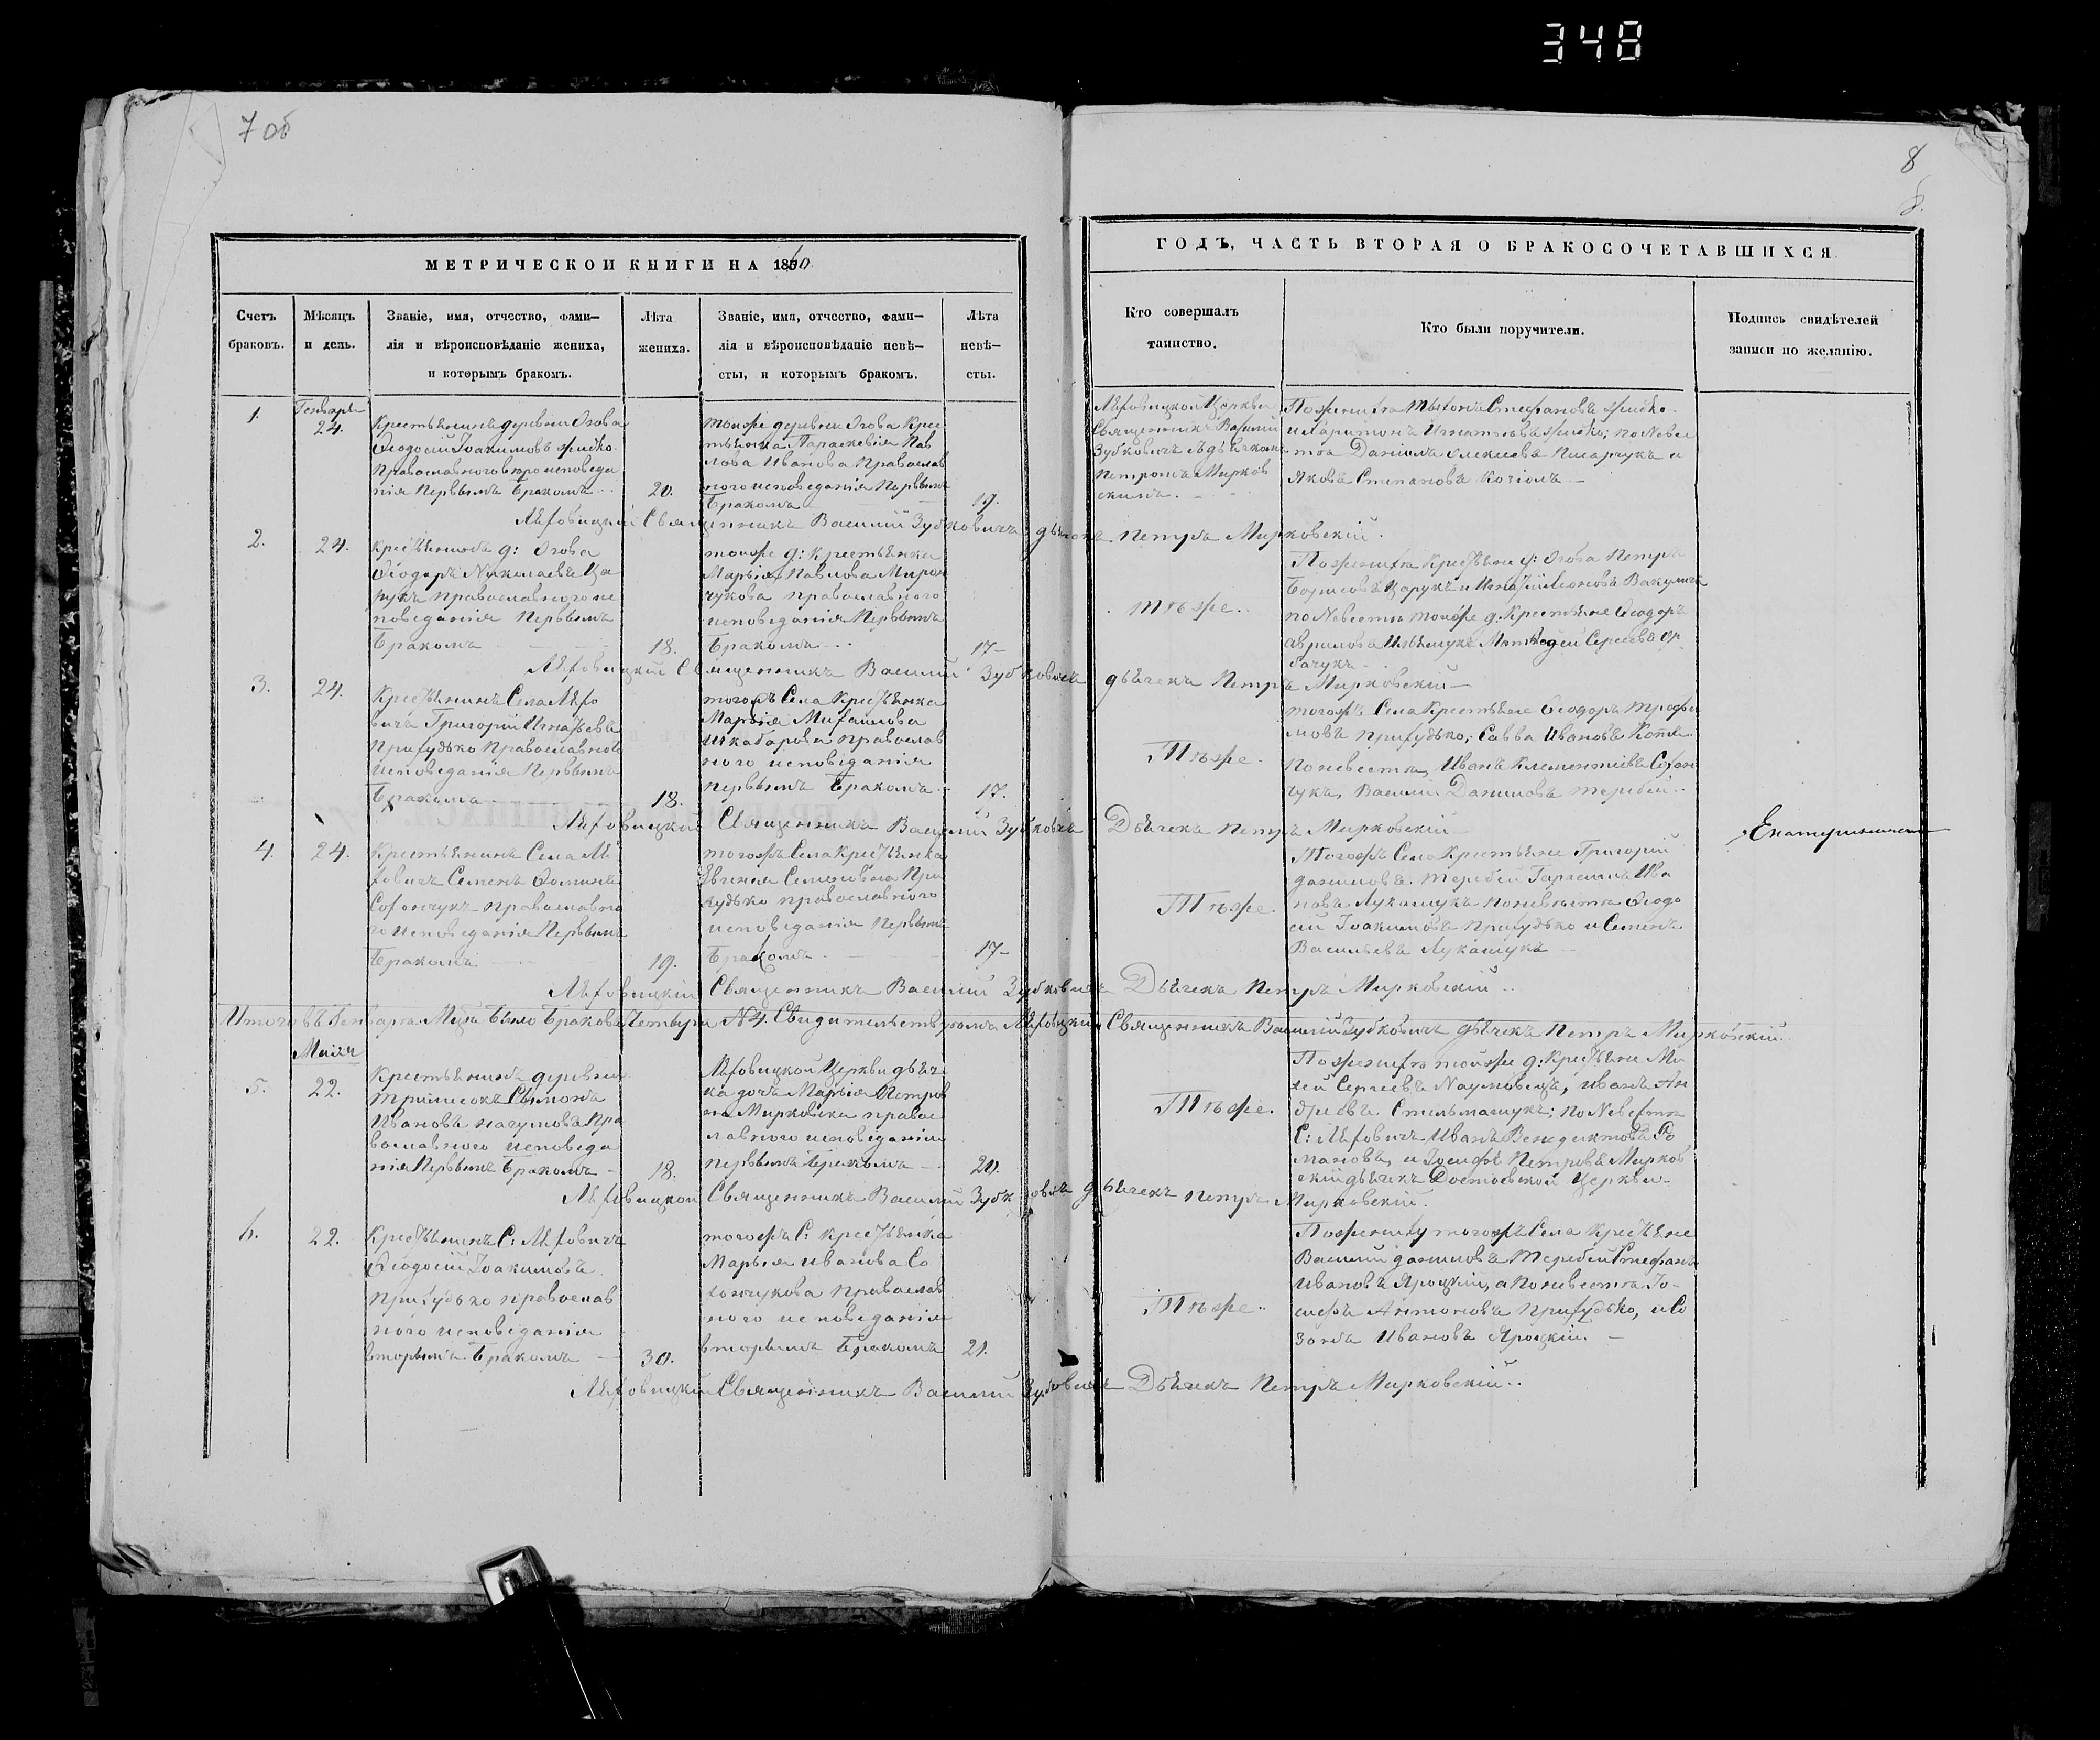 348
7 об
8
8.
МЕТРИЧЕСКОЙ КНИГИ НА 1860.
ГОДЪ, ЧАСТЬ ВТОРАЯ О БРАКОСОЧЕТАВШИХСЯ.
Счетъ
браковъ.
Мѣсяцъ
и день.
Званіе, имя, отчество, фами-
лія и вѣроисповѣданіе жениха,
и которымъ бракомъ.
Лѣта
жениха.
Званіе, имя, отчество, фами-
лія и вѣроисповѣданіе невѣ-
сты, и которымъ бракомъ.
Лѣта
невѣ-
сты.
Кто совершалъ
таинство.
Кто были поручители.
Подпись свидѣтелей
записи по желанію.
1.
Генваря
24.
Крестьянинъ деревни Огова
Ѳеодосій Іоакимовъ
Православного вѣроисповеда
нія Первымъ Бракомъ
20.
тойже деревни Огова Крес
тьянка Параскевія Пав
лова Иванова Православ
ного исповеданія Первымъ
Бракомъ
19.
Церкви
Священникъ Василій
Зубковичъ съ дьячкомъ
Петромъ Мирков
скимъ.
Стефановъ
и Харитонъ Игнатьевъ по Невес
та Даніилъ Алексіевъ Писарчукъ и
Яковъ Степановъ
Священникъ Василій Зубковичъ дьячекъ Петръ Мирковскій.
2.
24.
Крестьянинъ д: Огова
Ѳеодоръ Николаевъ Ца
рукъ православного ис
поведанія Первымъ
Бракомъ
18.
тойже д: крестьянка
Марія Павлова Мирон
чукова православного
исповеданія Первымъ
Бракомъ
17-
Тѣже.
По женихѣ Крестьяне д: Огова Петръ
Борисовъ Царукъ и Игнатій Леоновъ
по Невестѣ тойже д: Крестьяне Ѳеодоръ
Сергеевъ Ор
бачукъ
Священникъ Василій Зубковичъ дьячекъ Петръ Мирковскій
3.
24.
Крестьянинъ Села Лѣхо
вичъ Григорій Игнатьевъ
Прихудько Православного
исповеданія Первымъ
Бракомъ
18.
тогожъ Села Крестьянка
Марія Михайлова
Шкабарова православ
ного исповеданія
первымъ Бракомъ
17.
Тѣже.
тогожъ Села Крестьяне Ѳеодоръ Трофи
мовъ Прихудько, Савва Ивановъ
по невестѣ, Иванъ Клементіевъ Сохон
чукъ, Василій Даниловъ Теребей
Священникъ Василій Зубковичъ Дьячекъ Петръ Мирковскій
4.
24.
Крестьянинъ Села Лѣ
ховичъ Семенъ Ѳоминъ
Сохончукъ православно
го исповеданія Первымъ
Бракомъ
19.
тогожъ Села Крестьянка
Евгенія Семенова При
худько православного
исповеданія Первымъ
Бракомъ
17-
Тѣже.
Тогожъ Села Крестьяне Григорій
Даниловъ Теребей Герасимъ Ива
новъ Лукашукъ по невѣстѣ Ѳеодо
сій Іоакимовъ Прихудько и Семенъ
Васильевъ Лукашукъ
Лѣховицкій Священникъ Василій Зубковичъ Дьячекъ Петръ Мирковскій
Итого въ Генварѣ Мцѣ было Браковъ Четыри N4. Свидительствуемъ Лѣховицкій Священникъ Василій Зубковичъ дьячекъ Петръ Мирковскій.
Маія
5.
22.
Крестьянинъ деревни
Сѵмонъ
Ивановъ Пра
вославного исповеда
нія Первымъ Бракомъ
18.
Лѣховицкой Церкви дьяч
ка дочь Марія Петров
на правос
лавного исповеданія
первымъ бракомъ
20.
Тѣже.
По женихѣ тойже д: Крестьяне Ми
хей Сергеевъ Наумовецъ, Иванъ Ан
дреевъ Стельмашукъ; по Невестѣ
С: Лѣховичъ Иванъ Венедиктовъ Ро
мановъ, и Іосифъ Петровъ Мирков
скій дьячекъ Достоевской Церкви.
Лѣховицкой Священникъ Василій Зубковичъ дьячекъ Петръ Мирковскій.
6.
22.
Крестьянинъ С: Лѣховичъ
Ѳеодосій Іоакимовъ
Прихудько православ
ного исповеданія
вторымъ Бракомъ
30.
тогожъ С: Крестьянка
Марья Иванова Со
хончукова Православ
ного исповеданія
вторымъ Бракомъ
21.
Тѣже.
По жениху тогожъ Села Крестьяне
Василій Даниловъ Теребей Стефанъ
Ивановъ Яроцкій, а по невестѣ Іо-
сифъ Антоновъ Прихудько, и Со
зонъ Ивановъ Яроцкій.
Лѣховицкій Священникъ Василій Зубковичъ Дьячекъ Петръ Мирковскій.